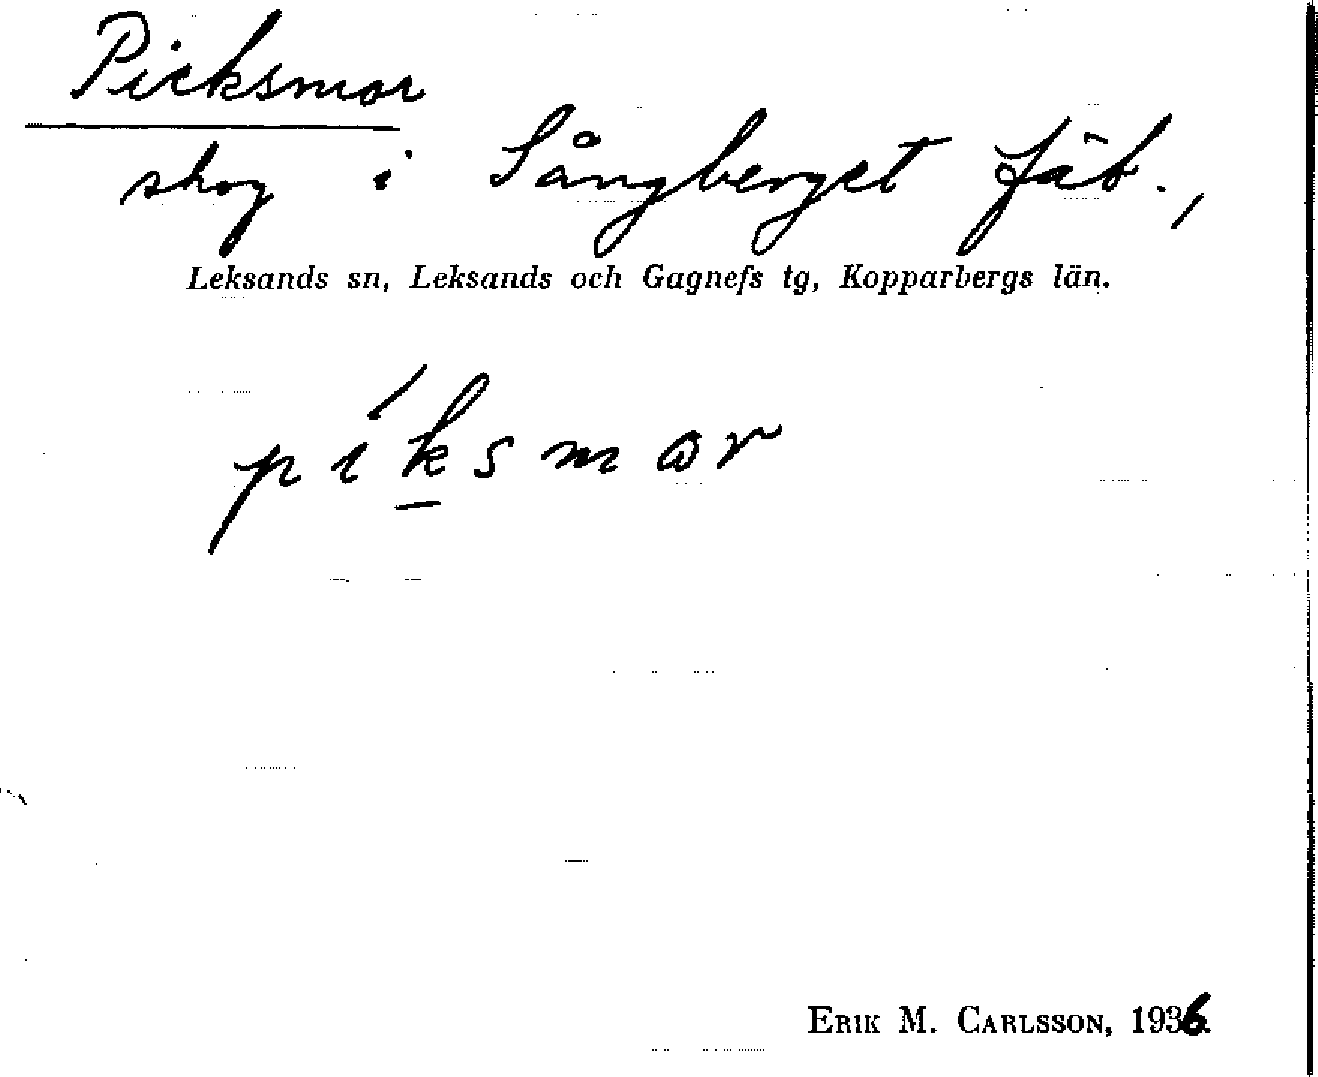 Picksmor
skog i Sångberget fäb.,
Leksands sn, Leksands och Gagnefs tg, Kopparbergs län.
píksmɷr
ERIK M. CARLSSON, 1936.